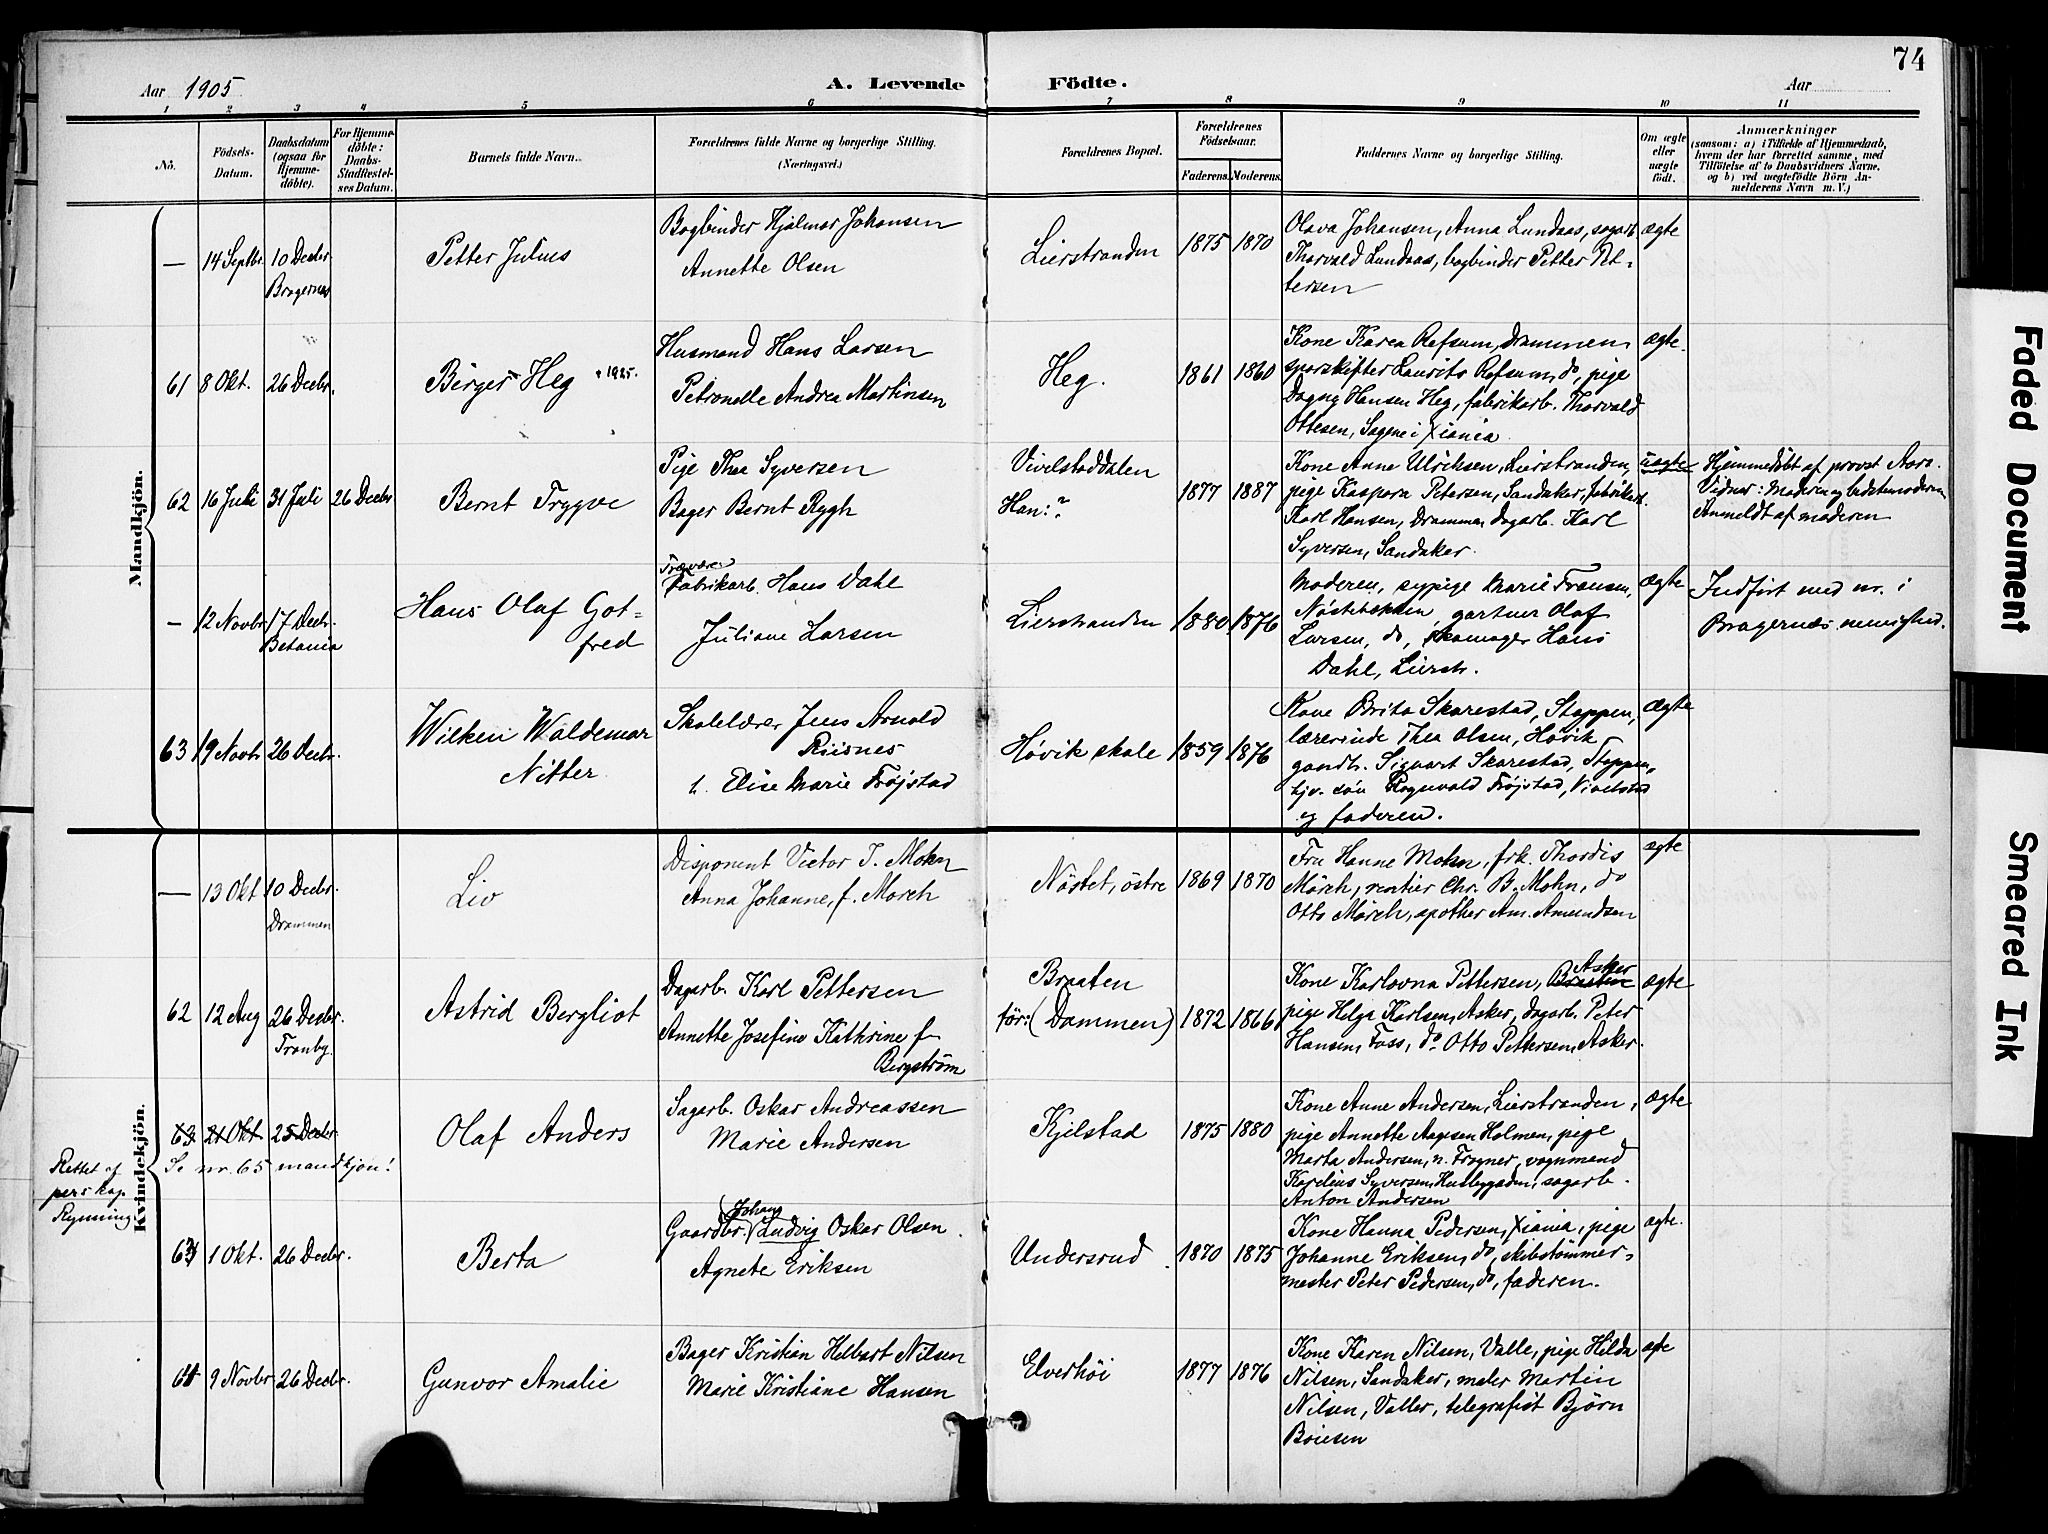 74
Aar 1905
A. Levende Födte.
Aar
1 2 3 4 5 6 7 8 9 10 11
Nô.
Födsels-Datum.
Daabsdatum (ogsaa for Hjemmedöbte).
For Hjemmedöbte: Daabs-Stadfestelses Datum.
Barnets fulde Navn.
Forældrenes fulde Navne og borgerlige Stilling. (Næringsvei.)
Forældrenes Bopæl.
Forældrenes Födselsaar.
Faderens. Moderens.
Faddernes Navne og borgerlige Stilling.
Om ægte eller uægte födt.
Anmærkninger
(saasom: a) i Tilfælde af Hjemmedaab,
hvem der har forrettet samme, med
Tilföielse af to Daabsvidners Navne,
og b) ved uægtefödte Börn An-
melderens Navn m. V.)
Mandkjön.
— 14 Septbr. 10 Decbr. Bragernæs
Petter Julius
Bogbinder Hjalmar Johansen
Annette Olsen
Lierstranden
1875 1870
Olava Johansen, Anna Lundaas, sagarb.
Thorvald Lundaas, bogbinder Petter Pet-
tersen
ægte
61 8 Okt. 26 Decbr.
Birger Heg + 1925.
Husmand Hans Larsen
Petronelle Andrea Martinsen
Heg.
1861 1860
Kone Karen Refsum, Drammen,
sporskifter Laurits Refsum, do, pige
Dagny Hansen Heg, fabrikarb. Thorvald
Ottesen, Sagene i Xiania
ægte.
62 16 Juli 31 Juli 26 Decbr
Bernt Trygve
Pige Thea Syversen
Bager Bernt Rygh
Vivelstaddalen
Han: ?
1877 1887
Kone Anne Ulriksen, Lierstranden,
pige Kaspara Petersen, Sandaker, fabrikarb.
Karl Hansen, Drammen, dagarb. Karl
Syversen, Sandaker.
uægte
Hjemmedøbt af provst Aars.
Vidner: Moderen og bedstemoderen
Anmeldt af moderen
— 12 Novbr 17 Decbr. Betania
Hans Olaf Got-
fred
Trævare
Fabrikarb. Hans Dahl
Juliane Larsen
Lierstranden
1880 1876
Moderen, sypige Marie Fransen,
gartner Olaf
Larsen, do, skomager Hans
Dahl, Lierstr.
ægte
Indført med nr. i
Bragernæs menighed.
63 19 Novbr 26 Decbr.
Wilken Waldemar
Nitter
Skolelærer Jens Arnold
Riisnes
h. Elise Marie Frøjstad
Høvik skole
1859 1876
Kone Brita Skarestad, Stoppen,
lærerinde Thea Olsen, Høvik
gaardb. Sigvart Skarestad, Stoppen,
hjv. søn Ragnvald Frøjstad, Vivelstad
og faderen.
ægte
Kvindekjön.
— 13 Okt 10 Decbr. Drammen
Liv
Disponent Victor T. Mohn
Anna Johanne, f. Morch
Nøstet, östre
1869 1870
Fru Hanne Mohn, frk. Thordis
Mörch, rentier Chr. B. Mohn, do
Otto Mörch, apother Am. Amundsen
ægte
62 12 Aug 26 Decbr. Tranby.
Astrid Bergliot
Dagarb. Karl Pettersen
Annette Josefine Kathrine f
Bergstrøm
Braaten
før: (Dammen)
1872 1866
Asker
Kone Karlovna Pettersen, Braaten
pige Helga Karlsen, Asker, dagarb. Peter
Hansen, Foss, do Otto Pettersen, Asker.
ægte
63 21 Okt 25 Decbr
Se nr. 65 mandkjøn!
Rettet af
pers kap.
Rynning
Olaf Anders
Sagarb. Oskar Andreassen
Marie Andersen
Kjelstad
1875 1880
Kone Anne Andersen, Lierstranden,
pige Annette Aagesen Holmen, pige
Marta Andersen, n. Frogner, vognmand
Karelius Syversen, Husbygaden, sagarb.
Anton Andersen
ægte
63 1 Okt. 26 Decbr.
Berta
(Johans
Gaardbr. Ludvig Oskar Olsen
Agnete Eriksen
Undersrud
1870 1875
Kone Hanna Pedersen, Xiania, pige
Johanne Eriksen, do, skibstømmer-
mester Peter Pedersen, do, faderen.
ægte.
64 9 Novbr 26 Decbr.
Gunvor Amalie
Bager Kristian Helbart Nilsen
Marie Kristiane Hansen
Elverhöi
1877 1876
Kone Karen Nilsen, Valle, pige Hilda
Nilsen, Sandaker, maler Martin
Nilsen, Valler, telegrafist Bjørn
Boiesen
ægte
Faded Document
Smeared Ink